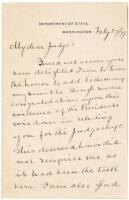 DEPARTMENT OF STATE,
WASHINGTON. July 27/97
My dear Judge:
Need not assure you
how delighted I am to have
the honor to add to the many
my humble though sincere
congratulations upon this
evidence of the President's
wisdom in selecting
you for the Judgeship.
This deserved honor did
not surprise me, as
it had been the talk
here. I am also glad